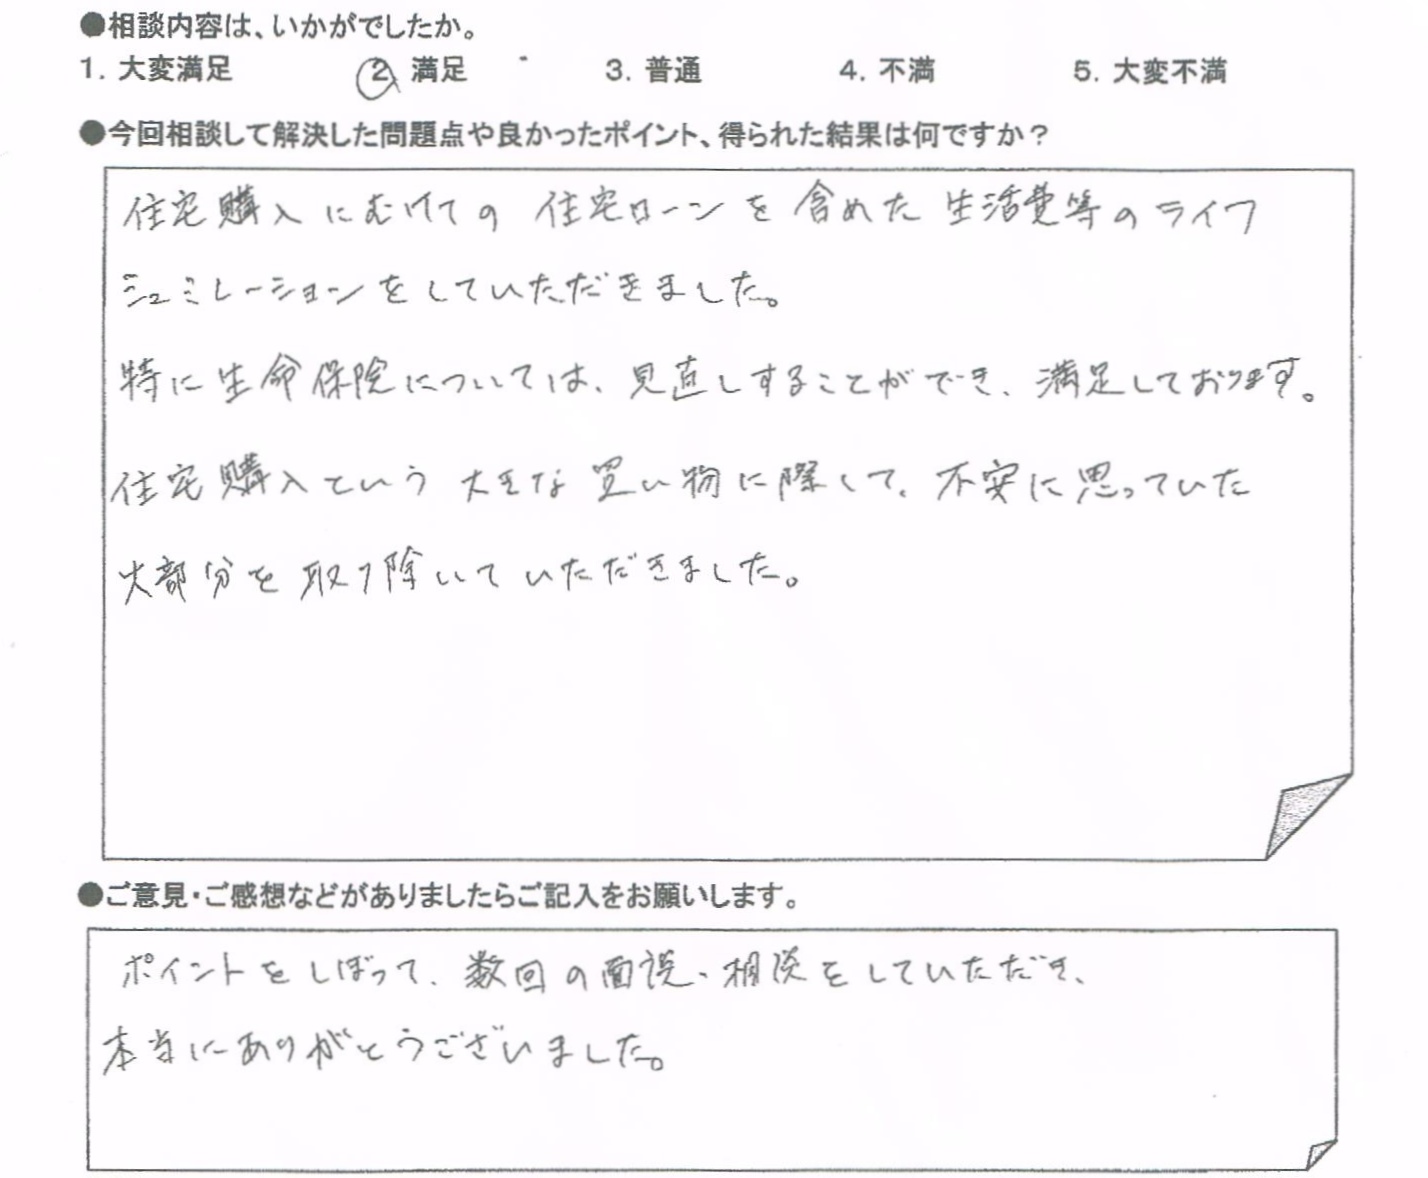 ●相談内容は、いかがでしたか。
1. 大変満足 2. 満足 3. 普通 4. 不満 5. 大変不満
●今回相談して解決した問題点や良かったポイント、得られた結果は何ですか?
住宅購入にむけての 住宅ローンを含めた生活費等のライフ
シュミレーションをしていただきました。
特に生命保険については、見直しすることができ、満足しております。
住宅購入という 大きな買い物に際して、不安に思っていた
大部分を取り除いていただきました。
●ご意見・ご感想などがありましたらご記入をお願いします。
ポイントをしぼって、数回の面談、相談をしていただき、
本当にありがとうございました。